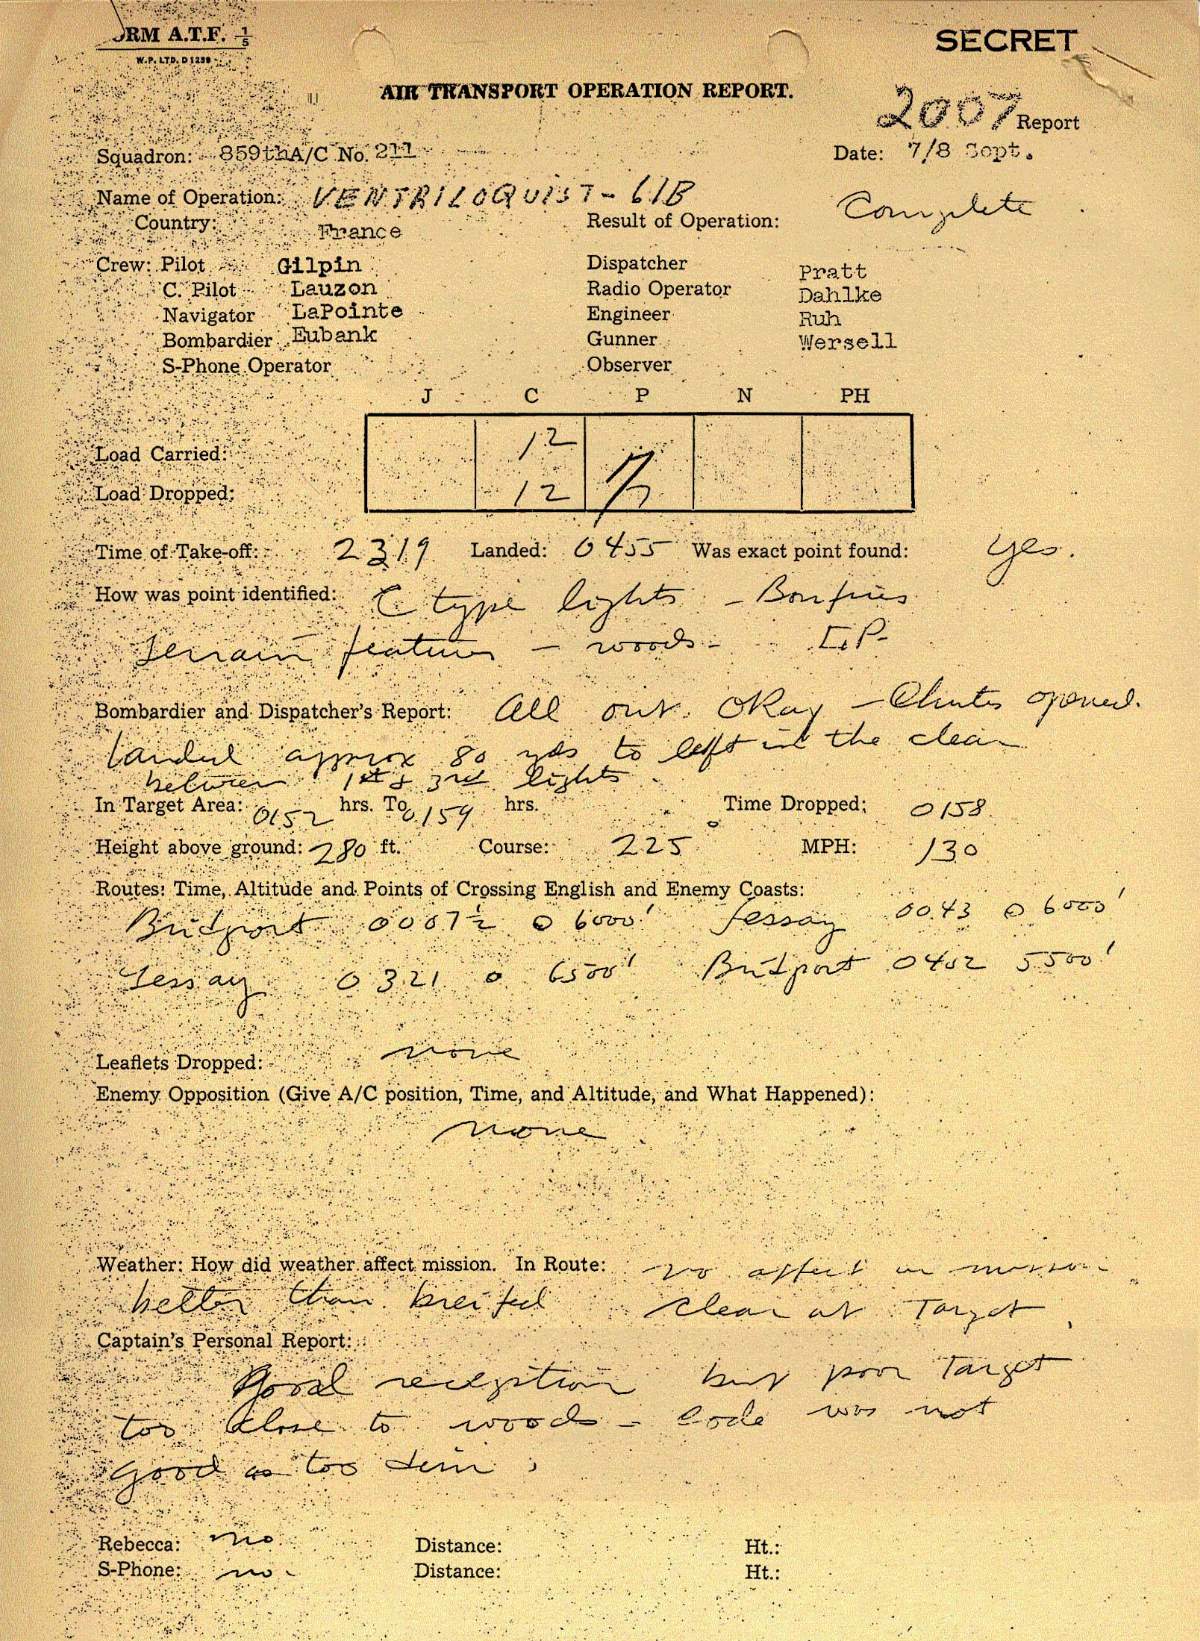 ORM A.T.F. 1/5
W.P. LTD. D1239
SECRET
AIR TRANSPORT OPERATION REPORT.
2007 Report
Squadron: 859th A/C No. 211 Date: 7/8 Sept.
Name of Operation: VENTRILOQUIST - 61B
Country: France Result of Operation: Complete
Crew: Pilot Gilpin Dispatcher Pratt
C. Pilot Lauzon Radio Operator Dahlke
Navigator LaPointe Engineer Ruh
Bombardier Eubank Gunner Wersell
S-Phone Operator Observer
J C P N PH
Load Carried: 12 7
Load Dropped: 12 7
Time of Take-off: 2319 Landed: 0455 Was exact point found: yes.
How was point identified: C type lights - Bonfires
Terrain features - woods -
Bombardier and Dispatcher's Report: All out Okay - Chutes opened.
Landed approx 80 yds to left in the clear
between 1st & 3rd lights.
In Target Area: 0152 hrs. To 0159 hrs. Time Dropped: 0158
Height above ground: 280 ft. Course: 225° MPH: 130
Routes: Time, Altitude and Points of Crossing English and Enemy Coasts:
Bridport 0007½ @ 6000' Lessay 0043 @ 6000'
Lessay 0321 @ 6500' Bridport 0402 5500'
Leaflets Dropped: none
Enemy Opposition (Give A/C position, Time, and Altitude, and What Happened):
none
Weather: How did weather affect mission. In Route: no affect on mission
better than breifed clear at Target.
Captain's Personal Report:
Good reception but poor Target
too close to woods - Code was not
good as too dim.
Rebecca: no Distance: Ht.:
S-Phone: no. Distance: Ht.: